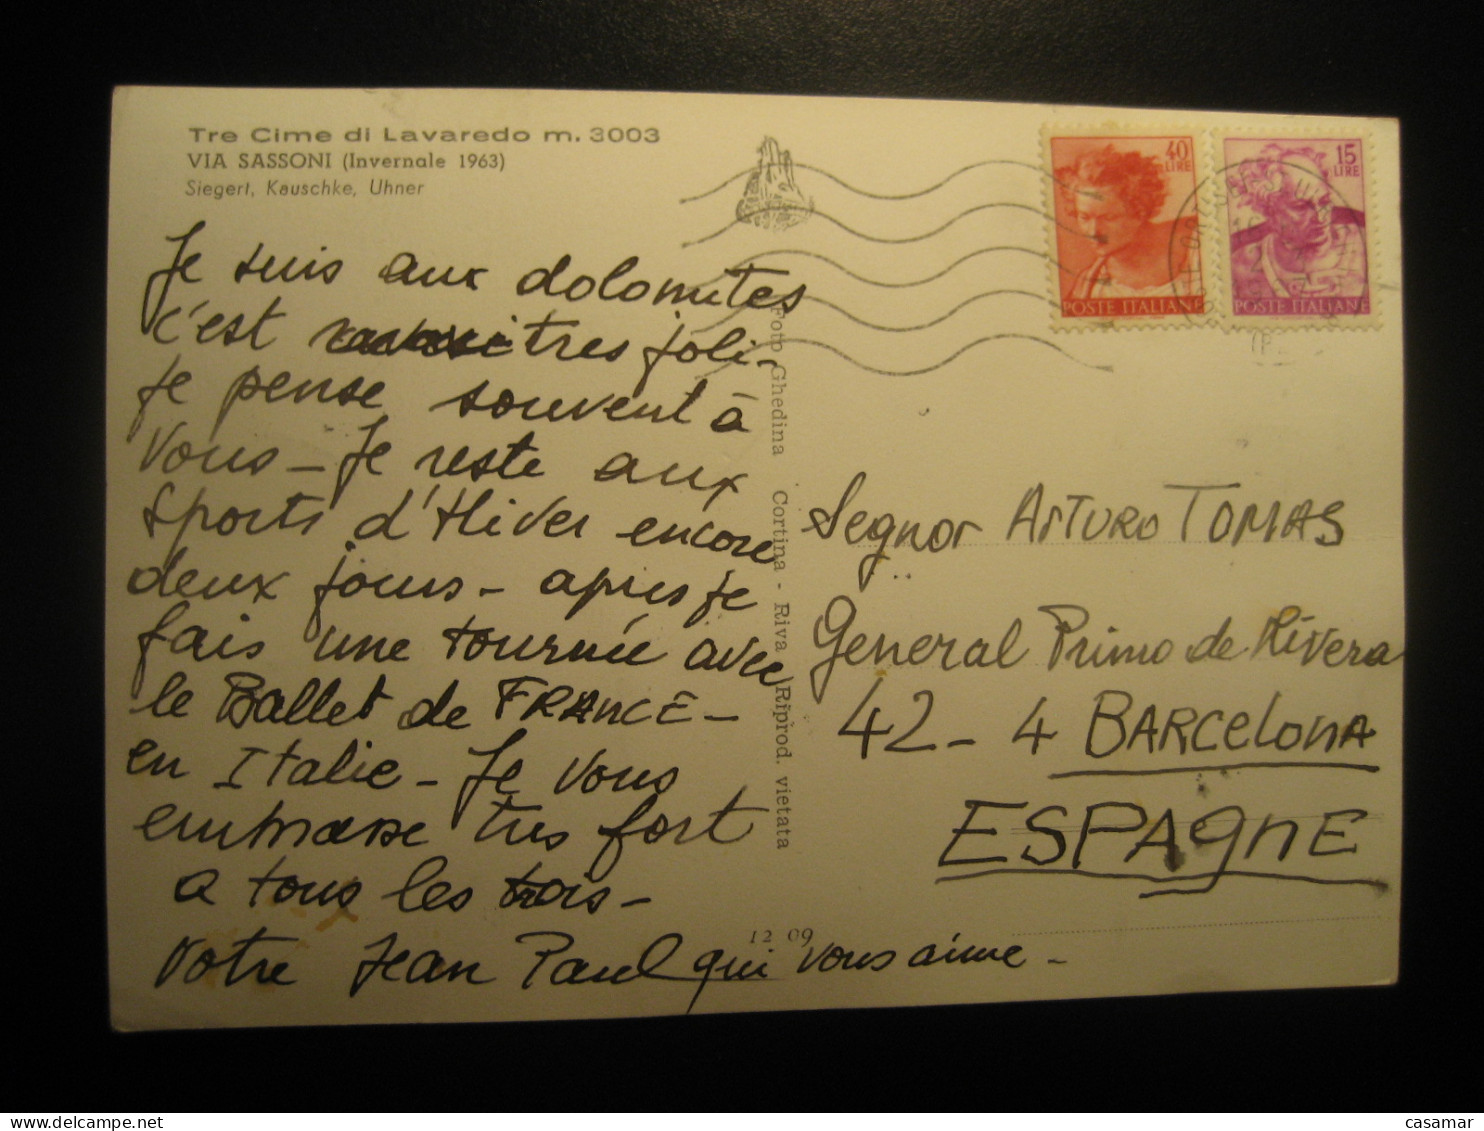 Tre Cime di Lavaredo m. 3003
VIA SASSONI (Invernale 1963)
Siegert, Kauschke, Uhner
Je suis aux dolomites
c'est tres joli-
Je pense souvent à
Vous - Je reste aux
Sports d'Hiver encore
deux jours - apres je
fais une tournée avec
le Ballet de FRANCE -
en Italie - Je vous
embrasse tres fort
a tous les trois -
Votre Jean Paul qui vous aime -
12 09
Foto Ghedina Cortina - Riva Riprod. vietata
40 LIRE
POSTE ITALIANE
15 LIRE
POSTE ITALIANE
Segnor ArTURO TOMAS
General Primo de Rivera
42 - 4 BARCelONA
ESPAgnE
casamar
www.delcampe.net